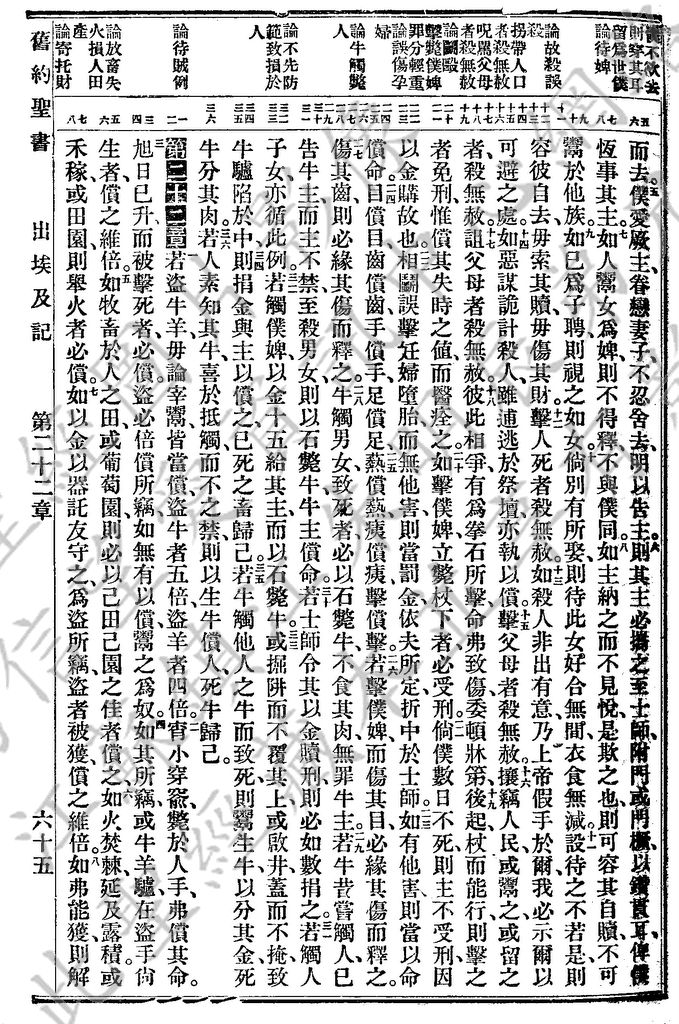 而去僕愛厥主眷戀妻子不忍舍去明以告主則其主必攜之至士師附門或門橛以鑽貫耳俾僕
恆事其主如人鬻女爲婢則不得釋不與僕同如主納之而不見悅是欺之也則可容其自贖不可
鬻於他族如已爲子聘則視之如女倘別有所娶則待此女好合無間衣食無減設待之不若是則
容彼自去毋索其贖毋傷其財擊人死者殺無赦如殺人非出有意乃上帝假手於爾我必示爾以
可避之處如惡謀詭計殺人雖逋逃於祭壇亦執以償擊父母者殺無赦攘竊人民或鬻之或留之
者殺無赦詛父母者殺無赦彼此相爭有爲拳石所擊命弗致傷委頓牀第後起杖而能行則擊之
者免刑惟償其失時之値而醫痊之如擊僕婢立斃杖下者必受刑倘僕數日不死則主不受刑因
以金購故也相鬭誤擊妊婦墮胎而無他害則當罰金依夫所定折中於士師如有他害則當以命
償命目償目齒償齒手償手足償足熱償熱痍償痍擊償擊若擊僕婢而傷其目必緣其傷而釋之
傷其齒則必緣其傷而釋之牛觸男女致死者必以石斃牛不食其肉無罪牛主若牛昔嘗觸人已
告牛主而主不禁至殺男女則以石斃牛牛主償命若士師令其以金贖刑則必如數捐之若觸人
子女亦循此例若觸僕婢以金十五給其主而以石斃牛或掘阱而不覆其上或啟井蓋而不掩致
牛驢陷於中則捐金與主以償之已死之畜歸己若牛觸他人之牛而致死則鬻生牛以分其金死
牛分其肉若人素知其牛喜於抵觸而不之禁則以生牛償人死牛歸己
第二十二章若盜牛羊毋論宰鬻皆當償盜牛者五倍盜羊者四倍宵小穿窬斃於人手弗償其命
旭日已升而被擊死者必償盜必倍償所竊如無有以償鬻之爲奴如其所竊或牛羊驢在盜手尙
生者償之維倍如牧畜於人之田或葡萄園則必以己田己園之佳者償之如火焚棘延及露積或
禾稼或田園則舉火者必償如以金以器託友守之爲盜所竊盜者被獲償之維倍如弗能獲則解
則穿其耳
留爲世僕
論待婢
論故殺誤
殺
拐帶人口
者殺無赦
呪詈父母
者殺無赦
論鬭毆
擊斃僕婢
罪分輕重
論誤傷孕
婦
論牛觸斃
人
論不先防
範致損於
人
論待賊例
論放畜失
火損人田
產
論寄托財
舊約聖書
出埃及記
第二十二章
六十五